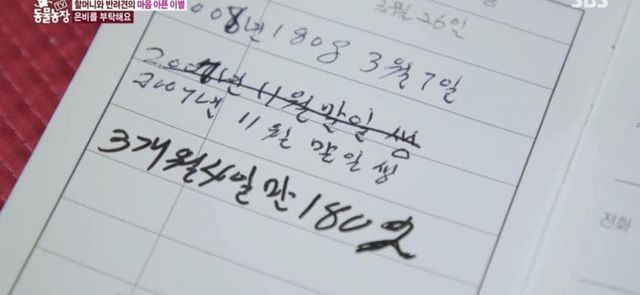 TV
동물농장
할머니와 반려견의 마음 아픈 이별
은비를 부탁해요
SBS
3월 26일
008년 1808 3월 7일
2007년 11월 말일 생
2007년 11월 말일 생
3개월 4일 만
전화